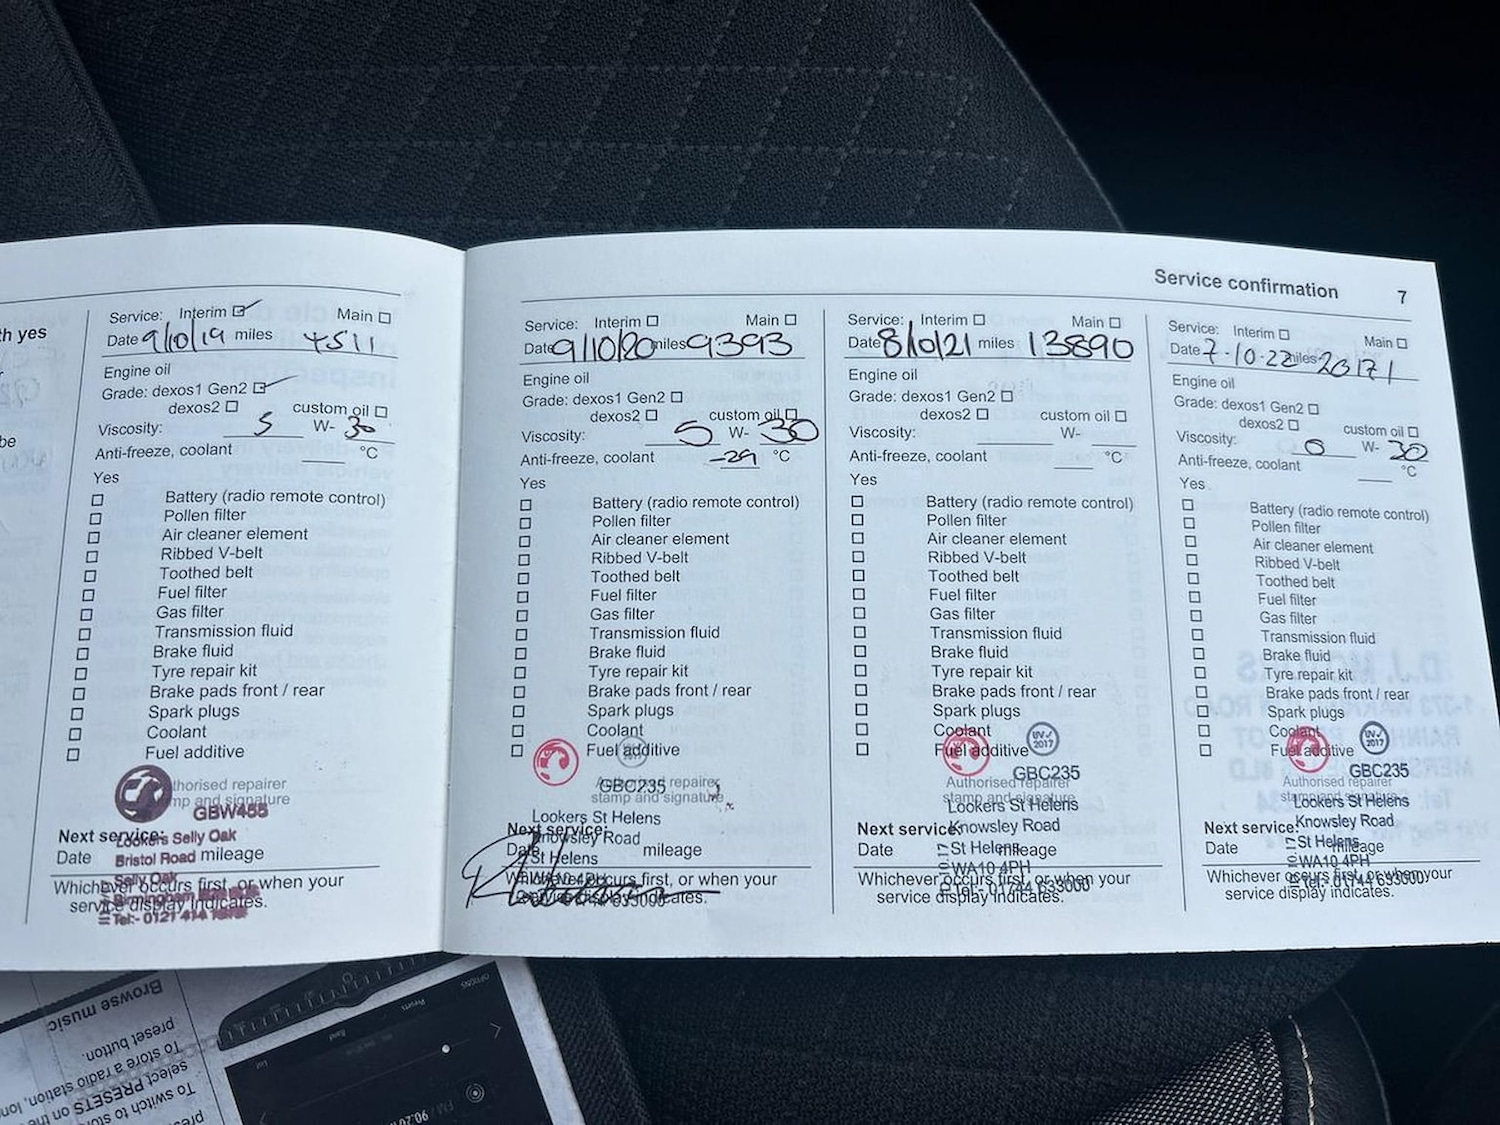 Service confirmation 7
th yes
be
Service: Interim Main
Date 9/10/19 miles 4511
Engine oil
Grade: dexos1 Gen2
dexos2 custom oil
Viscosity: 5 W- 30
Anti-freeze, coolant °C
Yes
Battery (radio remote control)
Pollen filter
Air cleaner element
Ribbed V-belt
Toothed belt
Fuel filter
Gas filter
Transmission fluid
Brake fluid
Tyre repair kit
Brake pads front / rear
Spark plugs
Coolant
Fuel additive
Authorised repairer
stamp and signature
GBW455
Next service:
Lookers Selly Oak
Date Bristol Road mileage
Selly Oak
Whichever occurs first, or when your
Birmingham
service display indicates.
Tel:- 0121 414
Service: Interim Main
Date 9/10/20 miles 9393
Engine oil
Grade: dexos1 Gen2
dexos2 custom oil
Viscosity: 5 W- 30
Anti-freeze, coolant -29 °C
Yes
Battery (radio remote control)
Pollen filter
Air cleaner element
Ribbed V-belt
Toothed belt
Fuel filter
Gas filter
Transmission fluid
Brake fluid
Tyre repair kit
Brake pads front / rear
Spark plugs
Coolant
Fuel additive
Authorised repairer
GBC235
stamp and signature
Lookers St Helens
Next service:
Knowsley Road
Date mileage
St Helens
WA10 4PH
Whichever occurs first, or when your
service display indicates.
01744 633000
Service: Interim Main
Date 8/10/21 miles 13890
Engine oil
Grade: dexos1 Gen2
dexos2 custom oil
Viscosity: W-
Anti-freeze, coolant °C
Yes
Battery (radio remote control)
Pollen filter
Air cleaner element
Ribbed V-belt
Toothed belt
Fuel filter
Gas filter
Transmission fluid
Brake fluid
Tyre repair kit
Brake pads front / rear
Spark plugs
Coolant
Fuel additive
UV 2017
GBC235
Authorised repairer
stamp and signature
Lookers St Helens
Next service:
Knowsley Road
Date mileage
St Helens
WA10 4PH
Whichever occurs first, or when your
Tel:- 01744 633000
service display indicates.
Service: Interim Main
Date 7-10-22 miles 20171
Engine oil
Grade: dexos1 Gen2
dexos2 custom oil
Viscosity: 0 W- 30
Anti-freeze, coolant °C
Yes
Battery (radio remote control)
Pollen filter
Air cleaner element
Ribbed V-belt
Toothed belt
Fuel filter
Gas filter
Transmission fluid
Brake fluid
Tyre repair kit
Brake pads front / rear
Spark plugs
Coolant
Fuel additive
UV 2017
GBC235
Authorised repairer
stamp and signature
Lookers St Helens
Next service:
Knowsley Road
Date mileage
St Helens
WA10 4PH
Whichever occurs first, or when your
Tel:- 01744 633000
service display indicates.
Browse music
preset button.
To store a radio station, lon
select PRESETS on the
To switch to sto
pres
OPTIONS
Presets
Band
List
FM
90.20